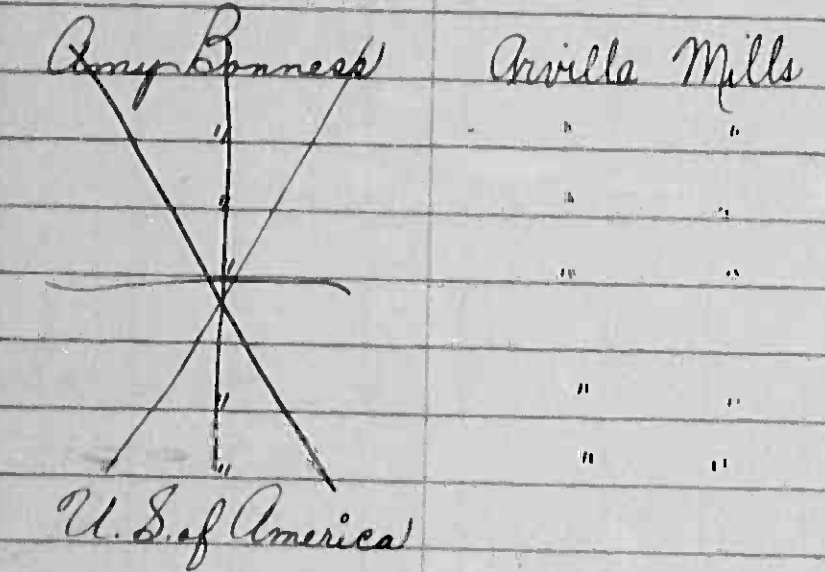 Amy Bonness Arvilla Mills
" " "
" " "
" " "
" " "
" " "
U. S. of America